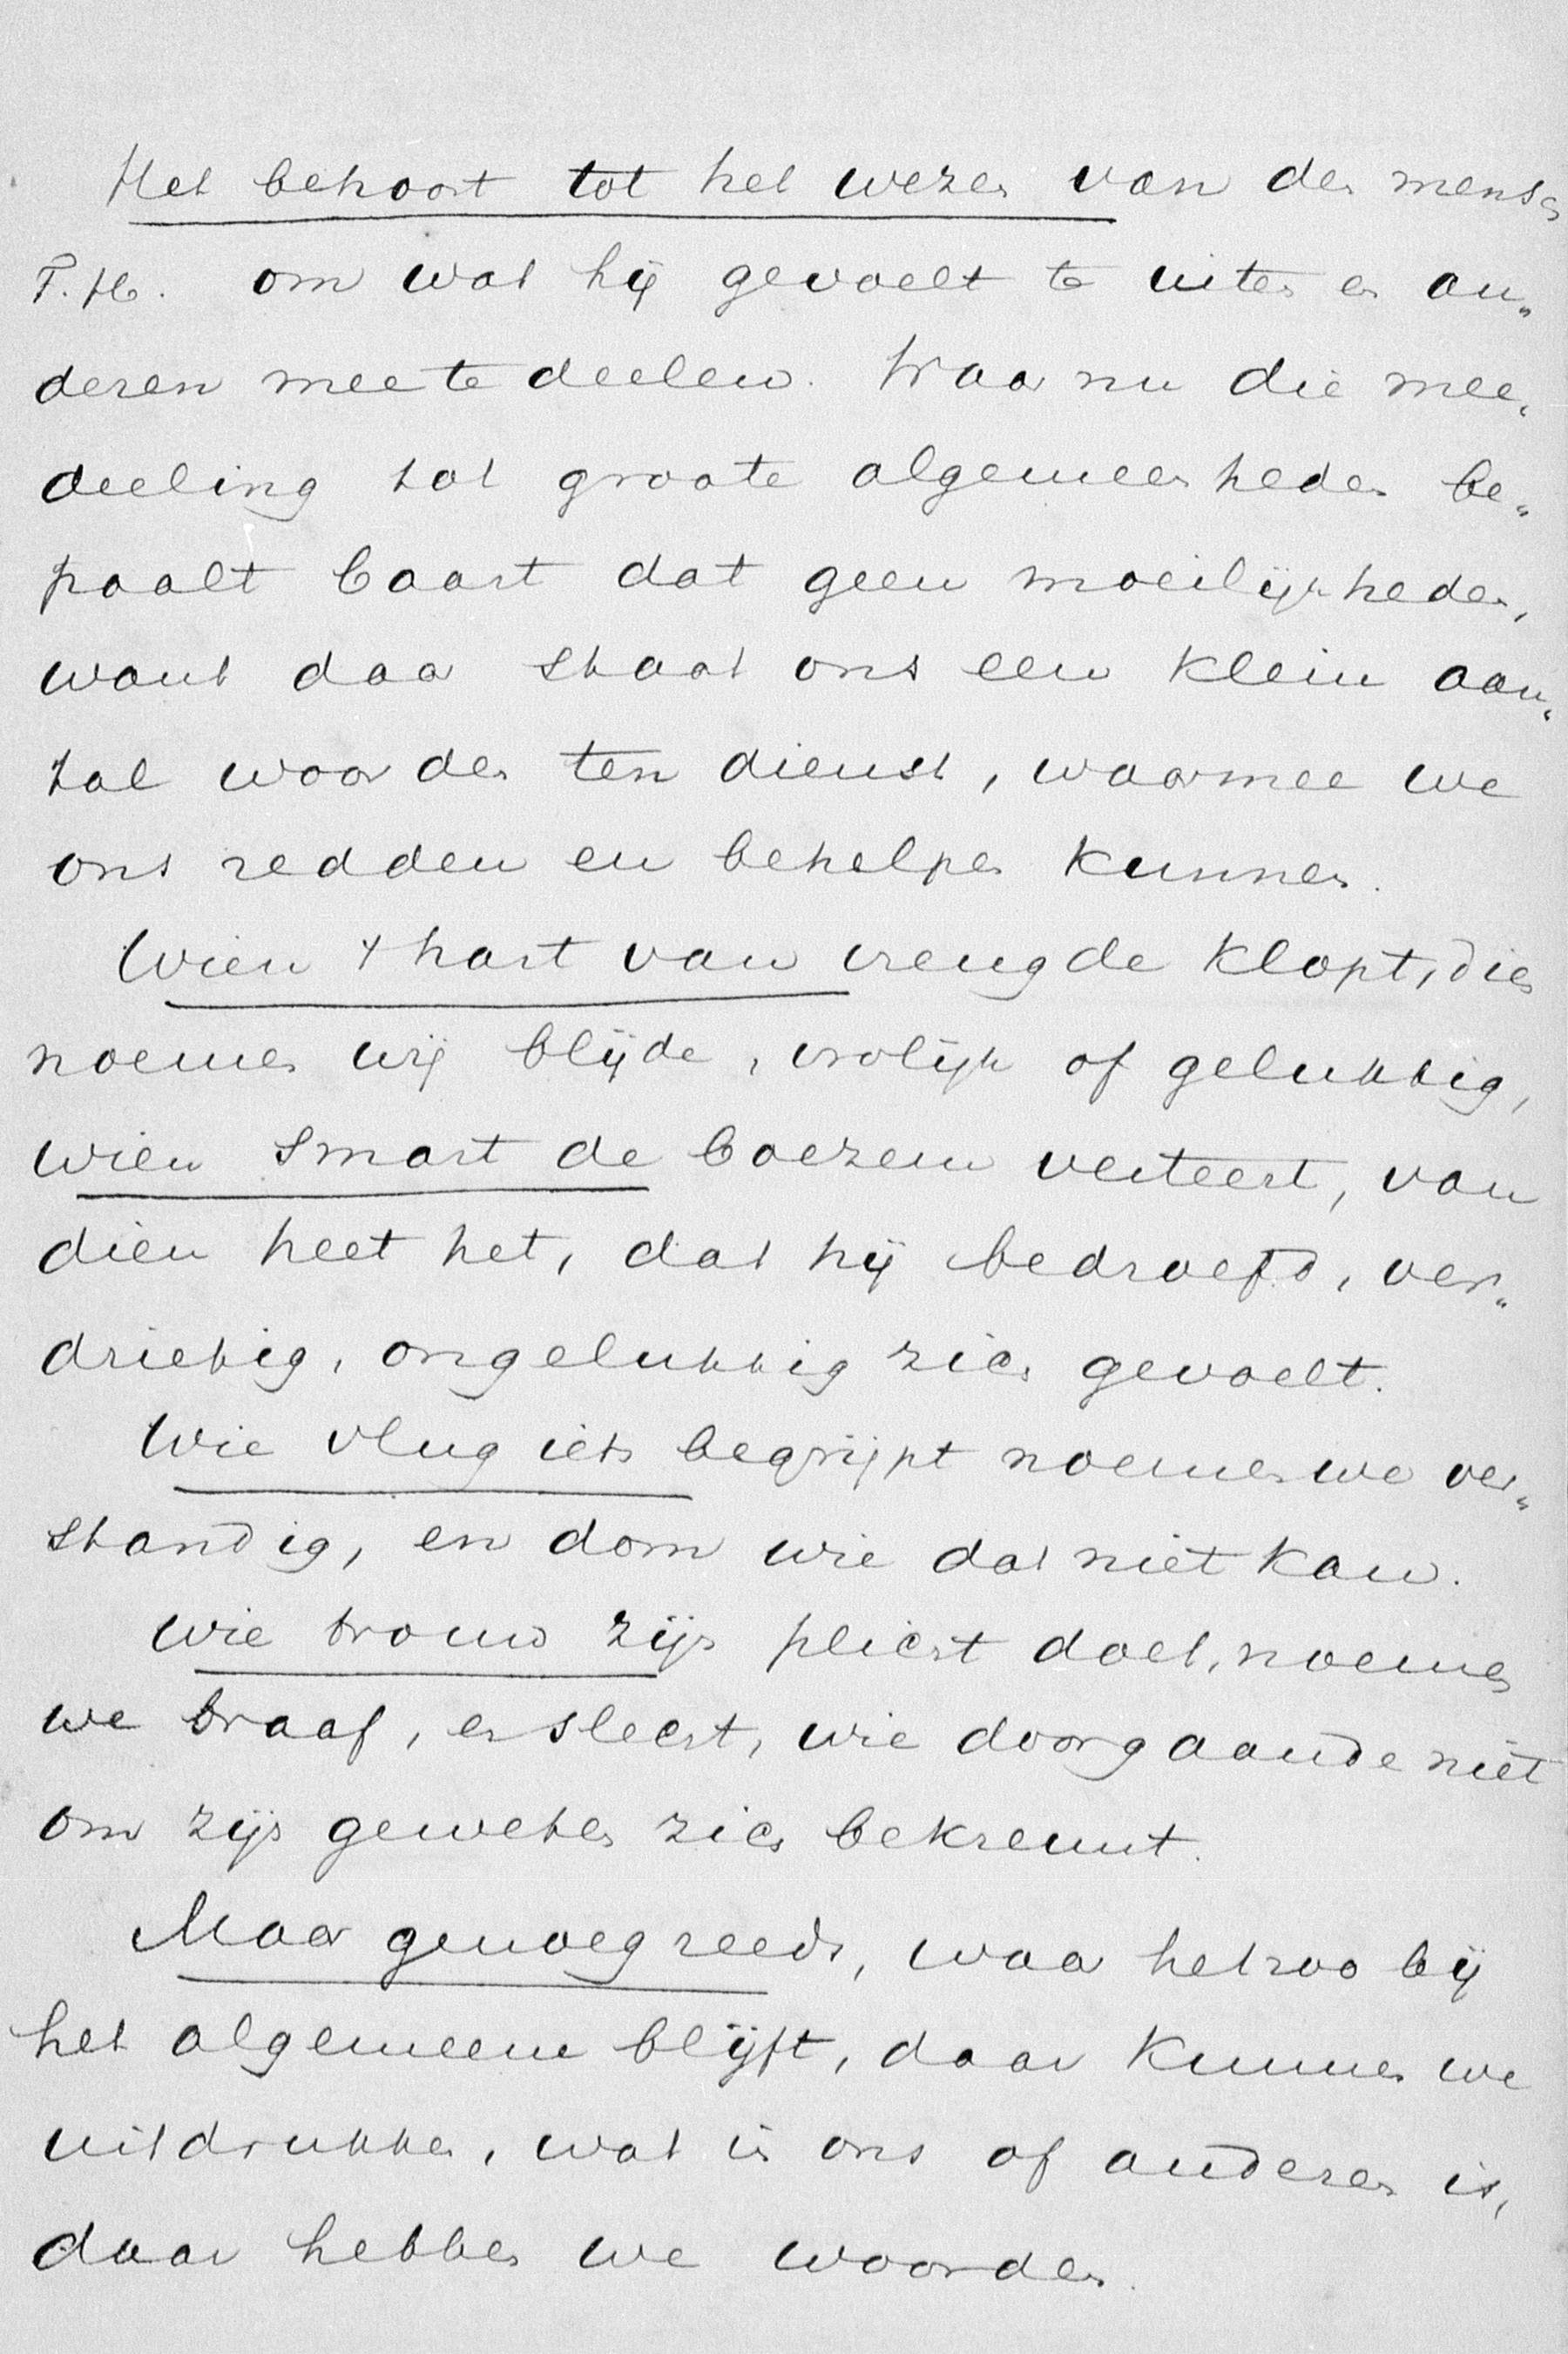 Het behoort tot het wezen van den mensch
T.H. om wat hij gevoelt te uiten en an„
deren mee te deelen. Waar nu die mee„
deeling tot groote algemeenheden be„
paalt baart dat geen moeilijkheden,
want daar staat ons een klein aan„
tal woorden ten dienst, waarmee we
ons redden en behelpen kunnen.
Wien 't hart van vreugde klopt, dien
noemen wij blijde, vrolijk of gelukkig,
wien smart de boezem verteert, van
dien heet het, dat hij bedroefd, ver„
drietig, ongelukkig zich gevoelt.
Wie vlug iets begrijpt noemen we ver„
standig, en dom wie dat niet kan.
Wie trouw zijn plicht doet, noemen
we braaf, en slecht, wie doorgaande niet
om zijn geweten zich bekreunt.
Maar genoeg reeds, waar het zoo bij
het algemeene blijft, daar kunnen we
uitdrukken, wat in ons of anderen is,
daar hebben we woorden.